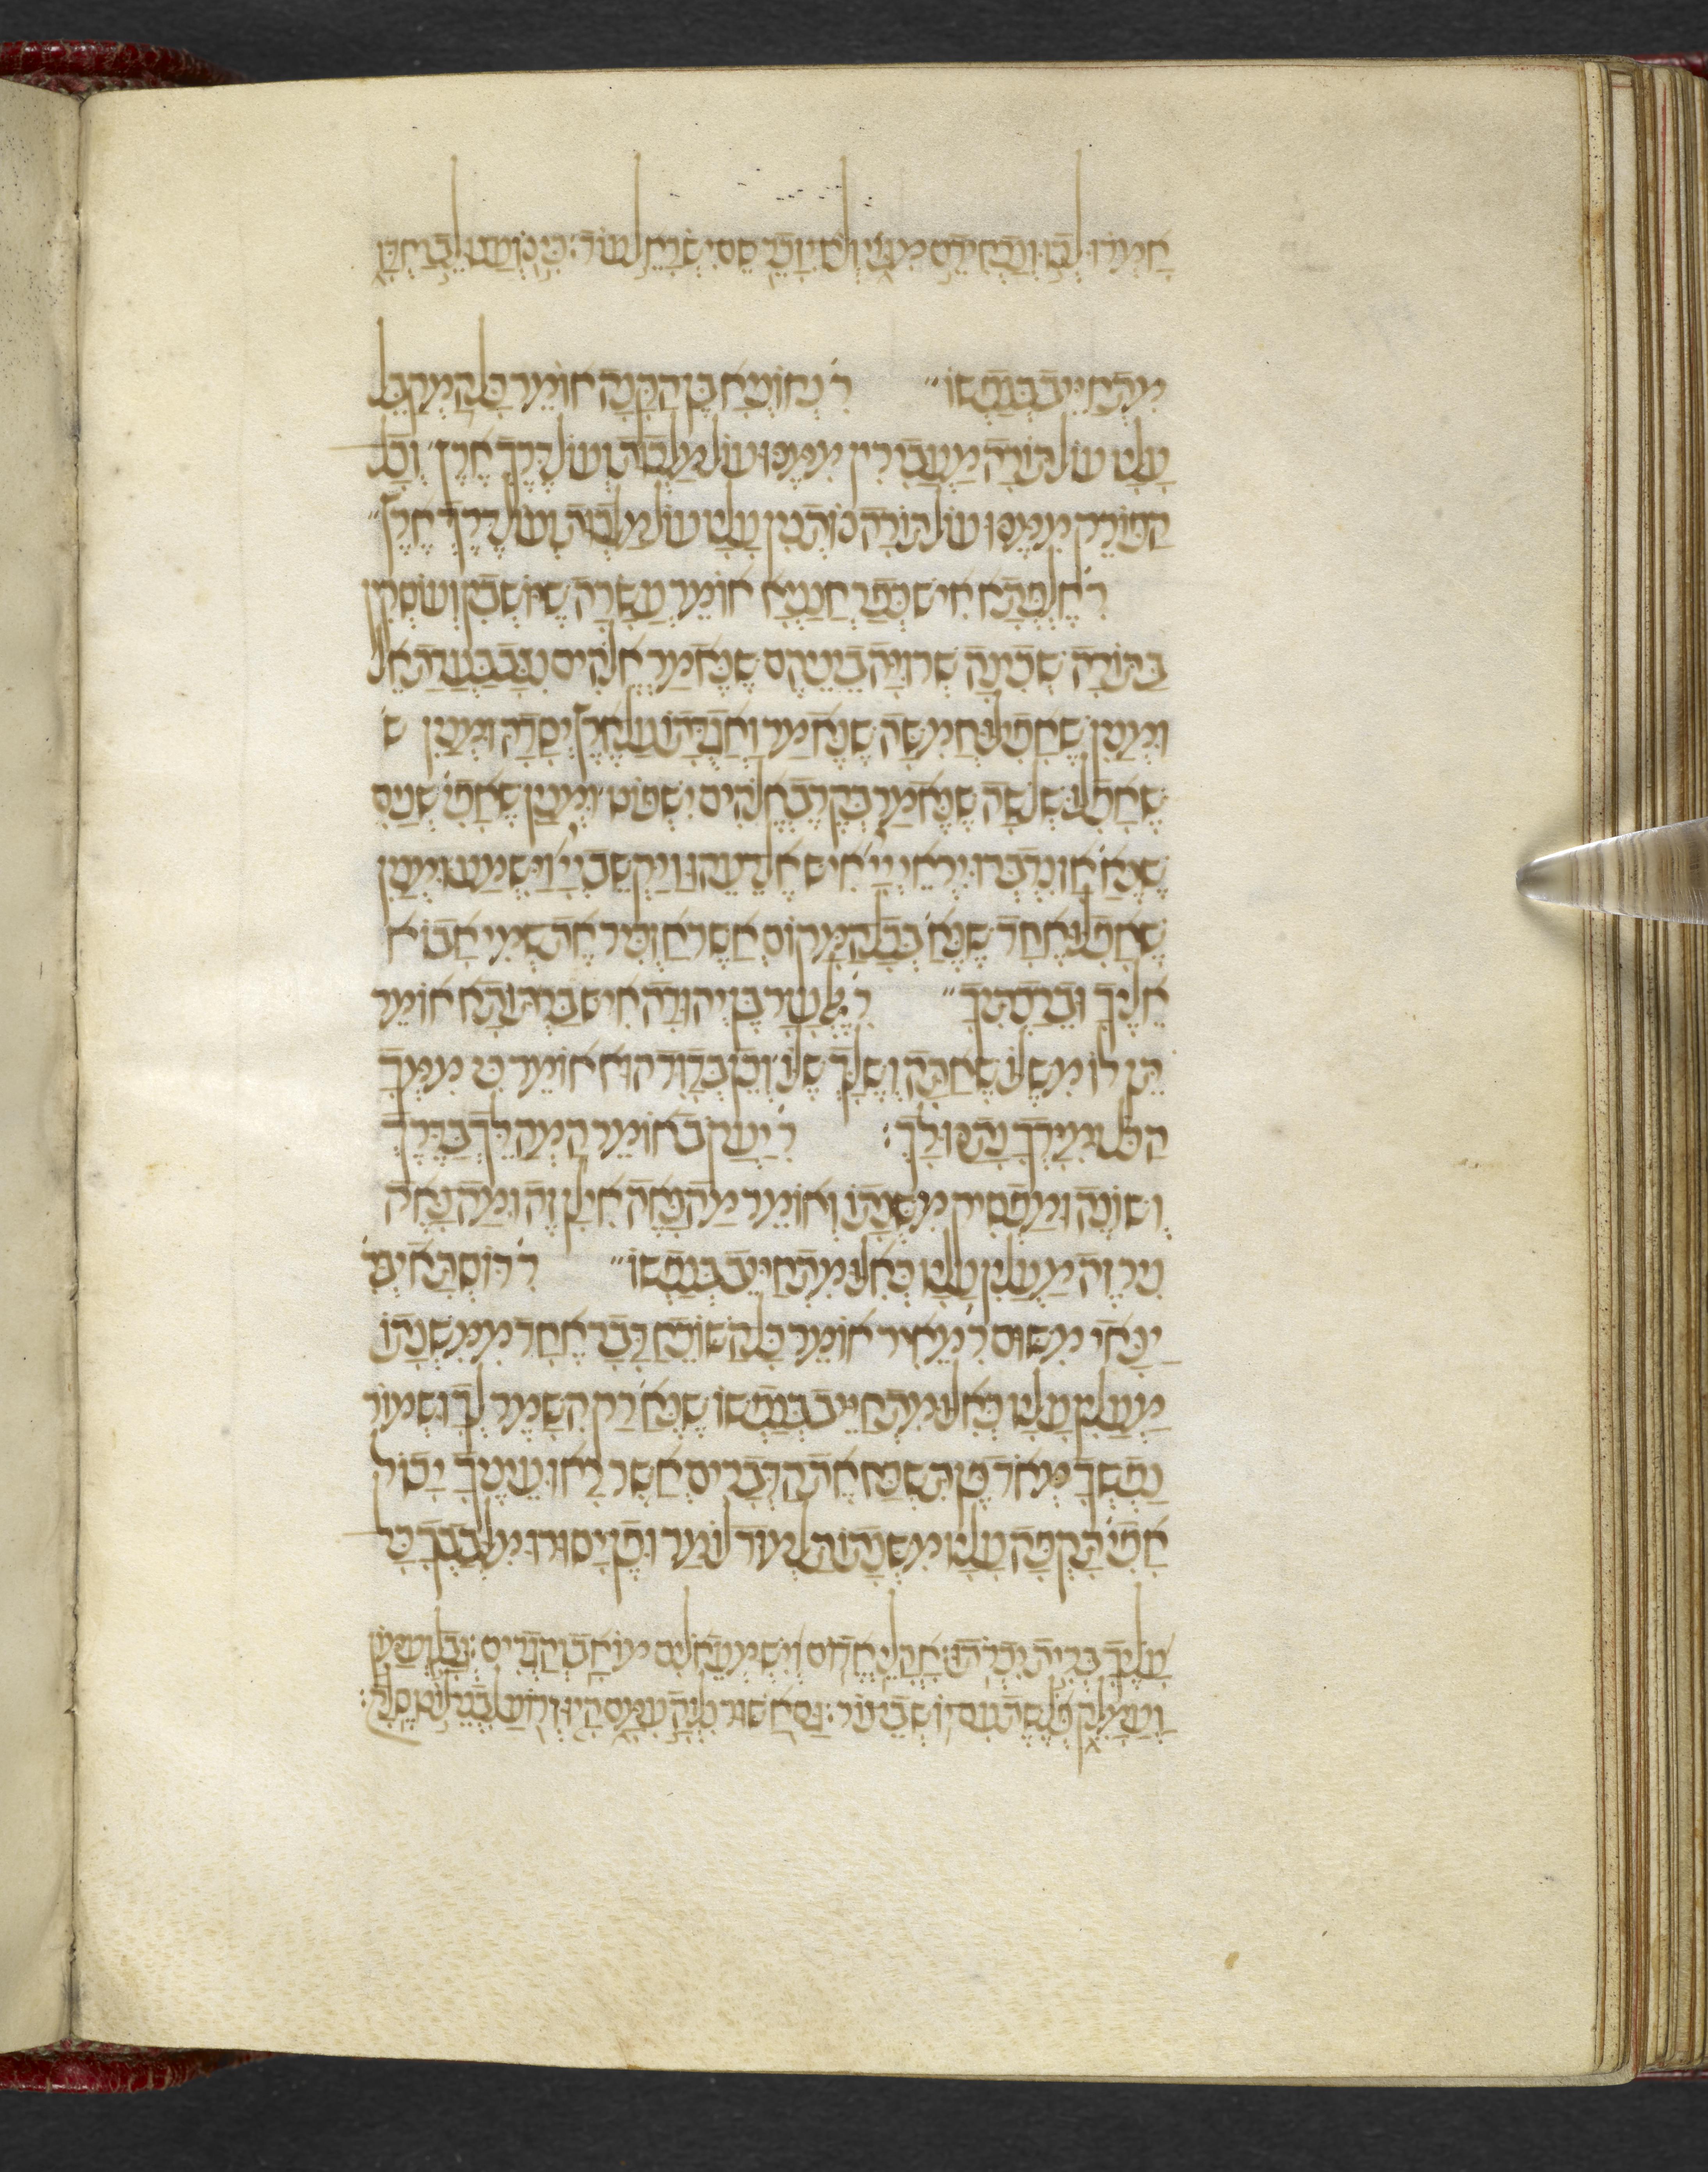 אמרו לכו ונכחידם מגוי ולא יזכר שם ישראל עוד: כי נועצו לב יחדו
מתחייב בנפשו״ ר׳ נחוניא בן הקנה אומר כל המקבל
עליו עול תורה מעבירין ממנו עול מלכות ועול דרך ארץ׳ וכל
הפורק ממנו עול תורה נותנין עליו עול מלכות ועול דרך ארץ״
ר׳ חלפתא איש כפר חנניא אומר עשרה שיושבין ועוסקין
בתורה שכינה שרויה ביניהם שנאמר אלהים נצב בעדת אל
ומנין שאפילו חמשה שנאמר ואגדתו על ארץ יסדה ומנין ש
שאפילו שלשה שנאמר בקרב אלהים ישפוט׳ ומנין שאפי׳ שנים
שנא׳ אז נדברו יראי יי׳ איש אל רעהו ויקשב יי׳ וישמע ומנין
שאפילו אחד שנא׳ בכל המקום אשר אזכיר את שמי אבוא
אליך וברכתיך״ ר׳ אלעזר בן יהודה איש ברתותא אומר
תן לו משלו שאתה ושלך שלו׳ וכן בדוד הוא אומר כי ממך
הכל ומידך נתנו לך: ר׳ יעקב אומר המהלך בדרך
ושונה ומפסיק משנתו ואומר מה נאה אילן זה ומה נאה
ניר זה מעלין עליו כאילו מתחייב בנפשו״ ר׳ דוסתאי בר׳
ינאי משום ר׳ מאיר אומר כל השוכח דבר אחד ממשנתו
מעלין עליו כאילו מתחייב בנפשו שנא׳ רק השמר לך ושמור
נפשך מאד פן תשכח את הדברים אשר ראו עיניך יכול
אפי׳ תקפה עליו משנתו תלמוד לומר ופן יסורו מלבבך כל
עליך ברית יכרותו: אהלי אדום וישמעאלים מואב והגרים: גבל ועמון
ועמלק פלשת עם יושבי צור: גם אשור נלוה עמם היו זרוע לבני לוט סלה: